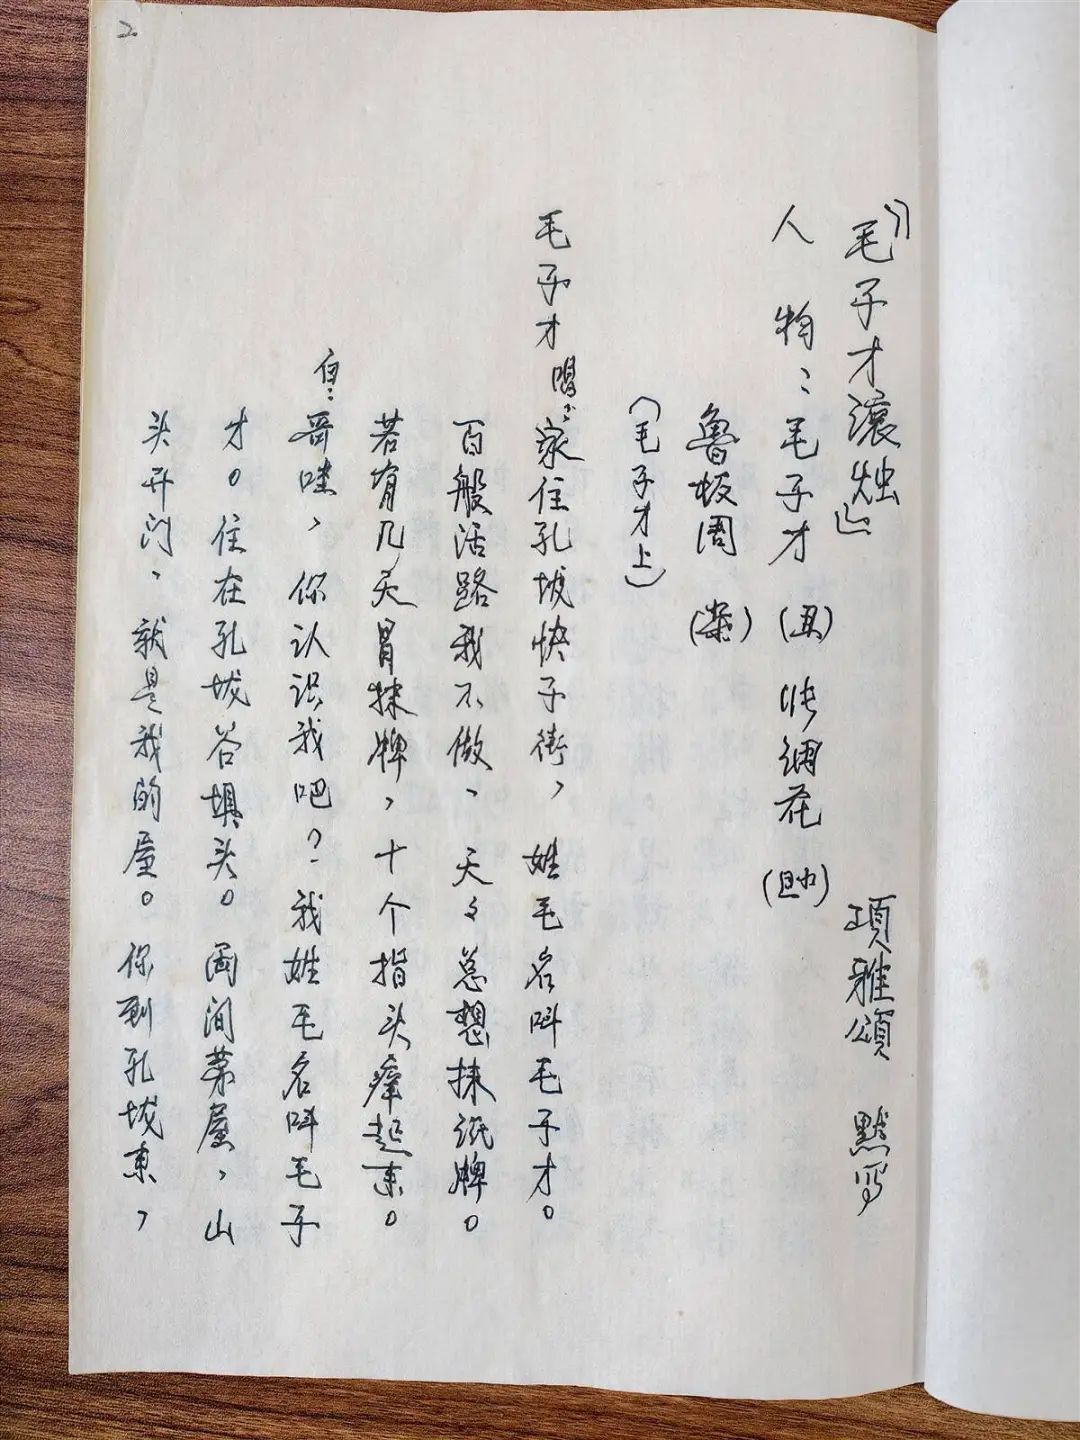 2
《毛子才滚烛》 項雅頌 默写
人 物：毛子才（丑） 细花（旦）
魯板周（杂）
（毛子才上）
毛子才唱：家住孔城快子街，姓毛名叫毛子才。
百般活路我不做、天々总想抹纸牌。
若有几天冒抹牌，十个指头癢起来。
白：哥哇，你认识我吧？我姓毛名叫毛子
才。住在孔城谷埧头。两间茅屋，山
头开门、就是我的屋。你到孔城来，